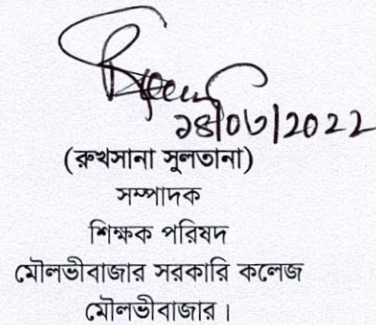 ১৪/০৩/২০২২
(রুখসানা সুলতানা)
সম্পাদক
শিক্ষক পরিষদ
মৌলভীবাজার সরকারি কলেজ
মৌলভীবাজার।